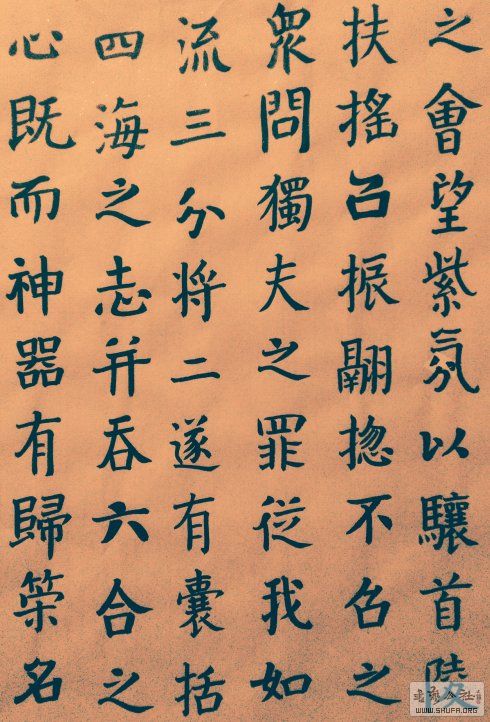 之會望紫氛以驤首
扶搖㠯振翮揔不召之
眾問獨夫之罪從我如
流三分将二遂有囊括
四海之志并吞六合之
心既而神器有歸策名
WWW.SHUFA.ORG